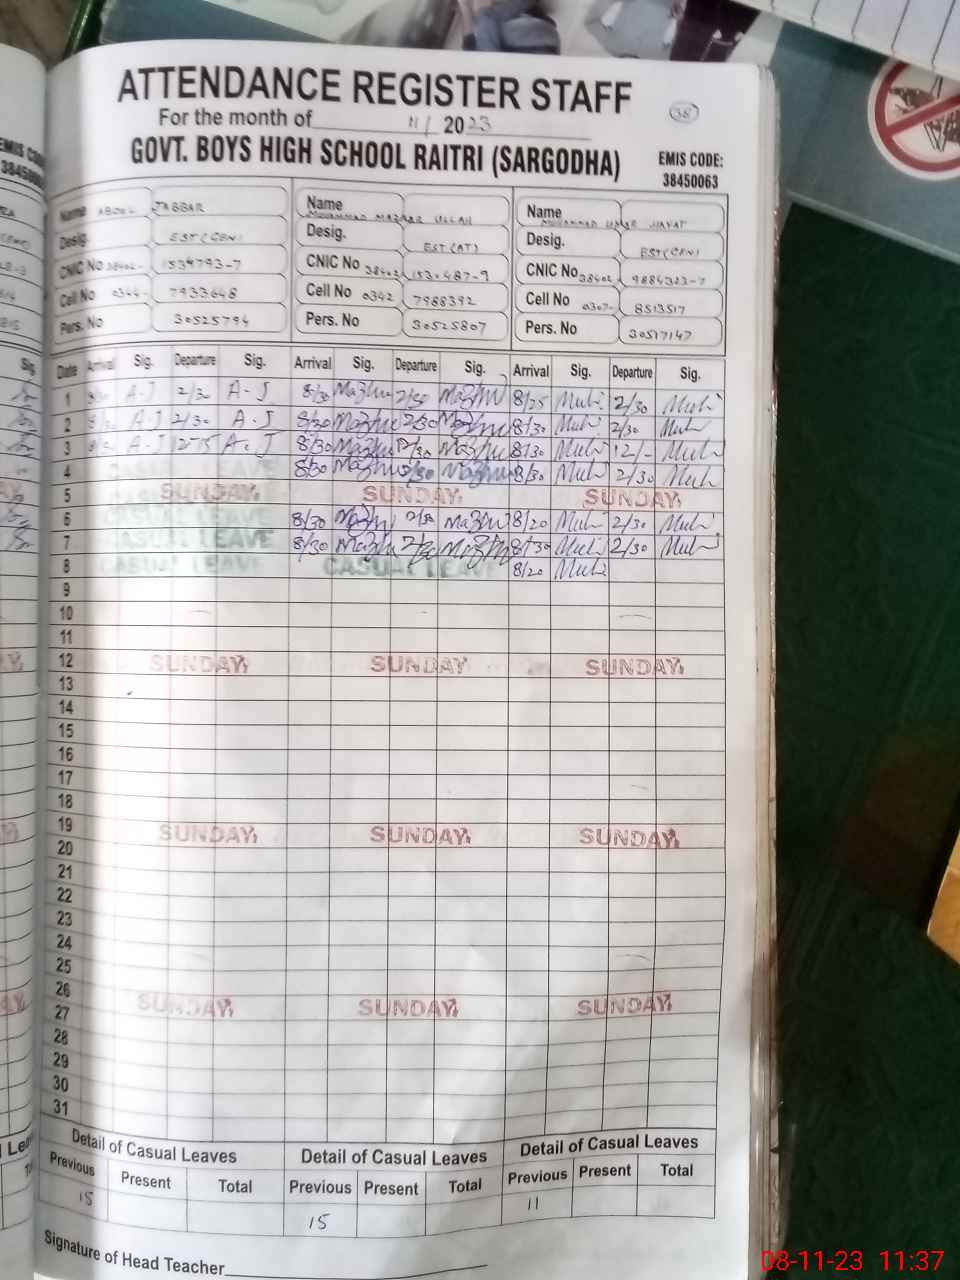 ATTENDANCE REGISTER STAFF
38
For the month of 11/ 2023
GOVT. BOYS HIGH SCHOOL RAITRI (SARGODHA)
EMIS CODE:
38450063
Name ABDUL JABBAR
Desig. EST(GEN)
CNIC No 38402- 1534793-7
Cell No 0344- 7933648
Pers. No 30525794
Name Muhammad MAZHAR ULLAH
Desig. EST(AT)
CNIC No 38402 1530487-9
Cell No 0342 7988392
Pers. No 30525807
Name Muhammad UMAR HAYAT
Desig. EST(GEN)
CNIC No 38402 9884323-7
Cell No 0307- 8513517
Pers. No 30517147
Date Arrival Sig. Departure Sig. Arrival Sig. Departure Sig. Arrival Sig. Departure Sig.
1 A-J 2/30 A-J 8/30 2/30 8/25 2/30
2 A-J 2/30 A-J 8/30 2/30 8/30 2/30
3 A-J 12-15 A-J 8/30 12/30 8/30 12/-
4 CASUAL LEAVE 8/30 2/30 8/30 2/30
5 SUNDAY SUNDAY SUNDAY
6 CASUAL LEAVE 8/30 2/30 8/20 2/30
7 CASUAL LEAVE 8/30 2/30 8/30 2/30
8 CASUAL LEAVE CASUAL LEAVE 8/20
9
10
11
12 SUNDAY SUNDAY SUNDAY
13
14
15
16
17
18
19 SUNDAY SUNDAY SUNDAY
20
21
22
23
24
25
26 SUNDAY SUNDAY SUNDAY
27
28
29
30
31
Detail of Casual Leaves Detail of Casual Leaves Detail of Casual Leaves
Previous Present Total Previous Present Total Previous Present Total
15 15 11
Signature of Head Teacher
08-11-23 11:37